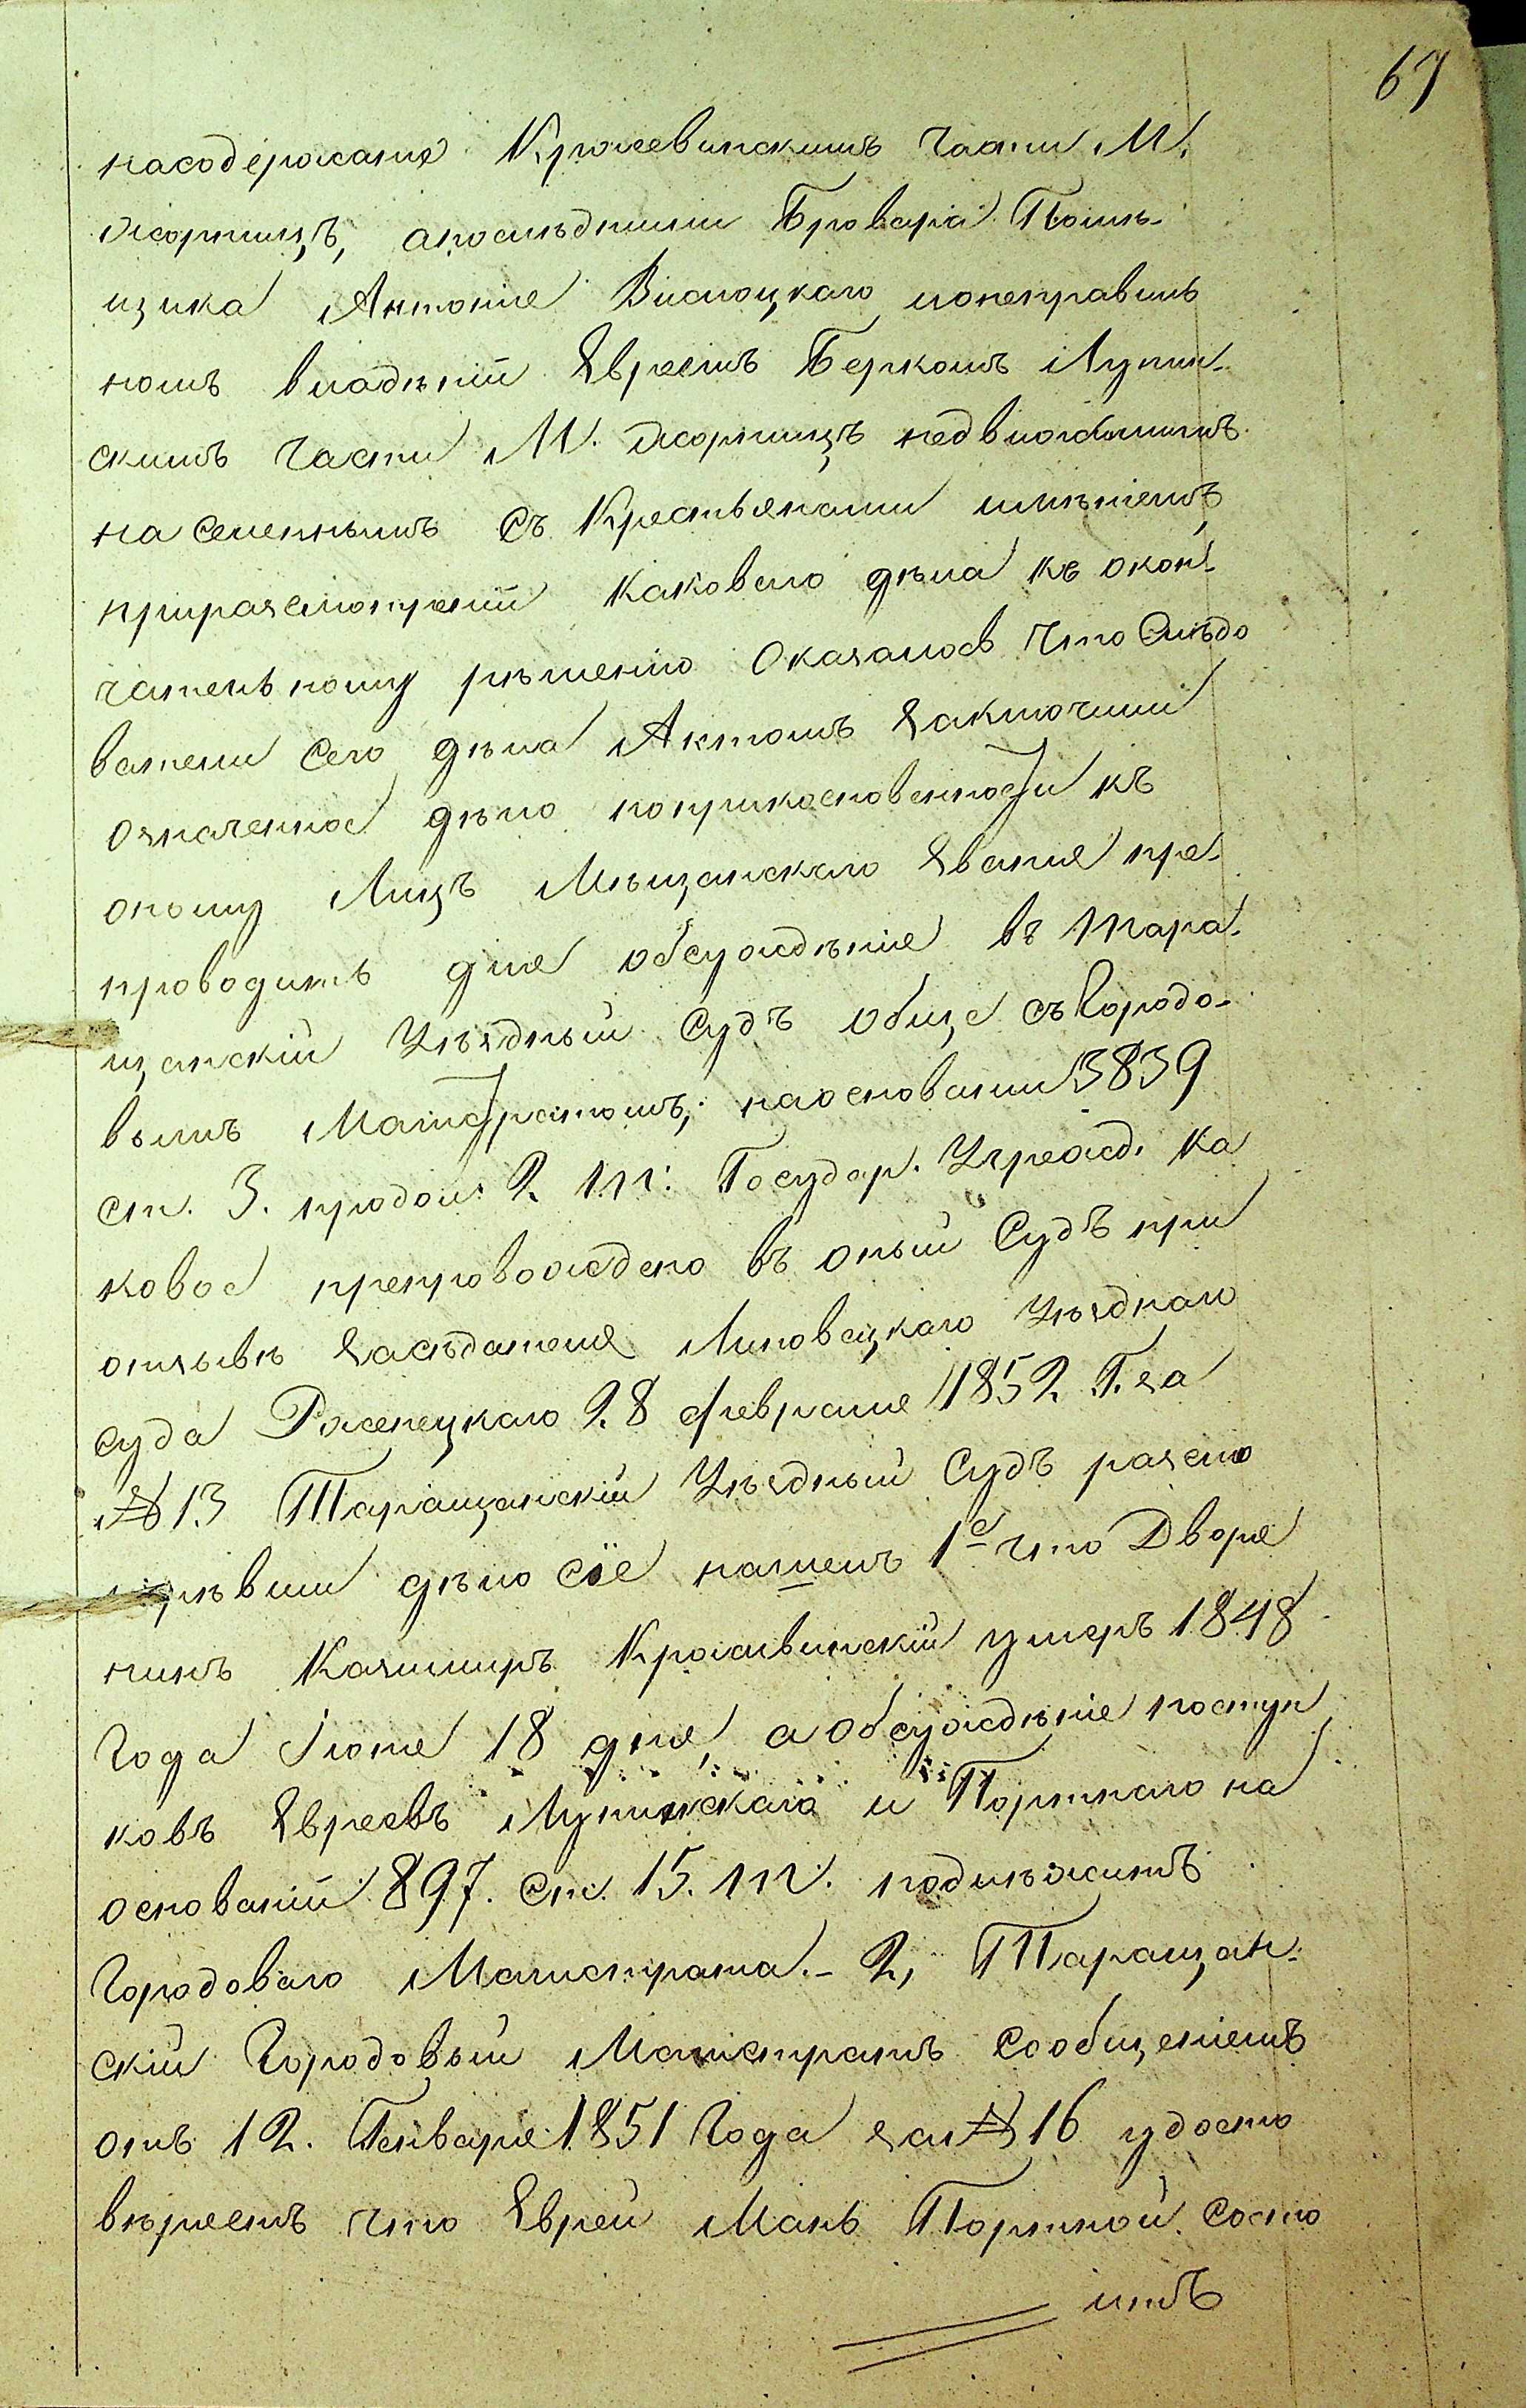 67
насодержание Крыжевинскимъ Части М.
Жорнищъ, апослѣдними Бровара Помѣ-
щика Антонія Висоцкаго, нонеправиль
номъ владѣніи Евреемъ Беркомъ Лупин-
скимъ Части М. Жорнищъ недвижимымъ
населеннымъ съ Крестьянами имѣніемъ,
приразсмотреніи каковаго дѣла къ окон-
чательному рѣшенію оказалось что Слѣдо
ватели Сего дѣла Актомъ Заключили
означенное дѣло поприкосновенности къ
оному Лицъ Мѣщанскаго Званія пре-
проводить для обсужденія въ Тара-
щанскій Уѣздный Судъ обще съ Городо-
вымъ Магистратомъ, наосновании 3839
ст. 3. продол: 2 т: Государ. Учрежд. Ка
ковое препровождено въ оный Судъ при
отзывѣ Засѣдателя Липовецкаго Уѣзднаго
суда Рженецкаго 28 февраля 1852 Г. за
№ 13 Таращанскій Уѣздный Судъ разсмо
трѣвши дѣло сіе нашелъ 1е что Дворя
нинъ Казимиръ Крыжевинскій умеръ 1848
Года Іюня 18 дня, а обсужденіе поступ
ковъ Евреевъ Лупинскаго и Портнаго на
основаніи 897. ст. 15. т. подлѣжитъ
Городоваго Магистрата.- 2, Таращан-
скій Городовый Магистратъ Сообщеніемъ
отъ 12. Генваря 1851 Года за № 16 удосто
вѣряетъ что Еврей Манъ Портной Состо
итъ